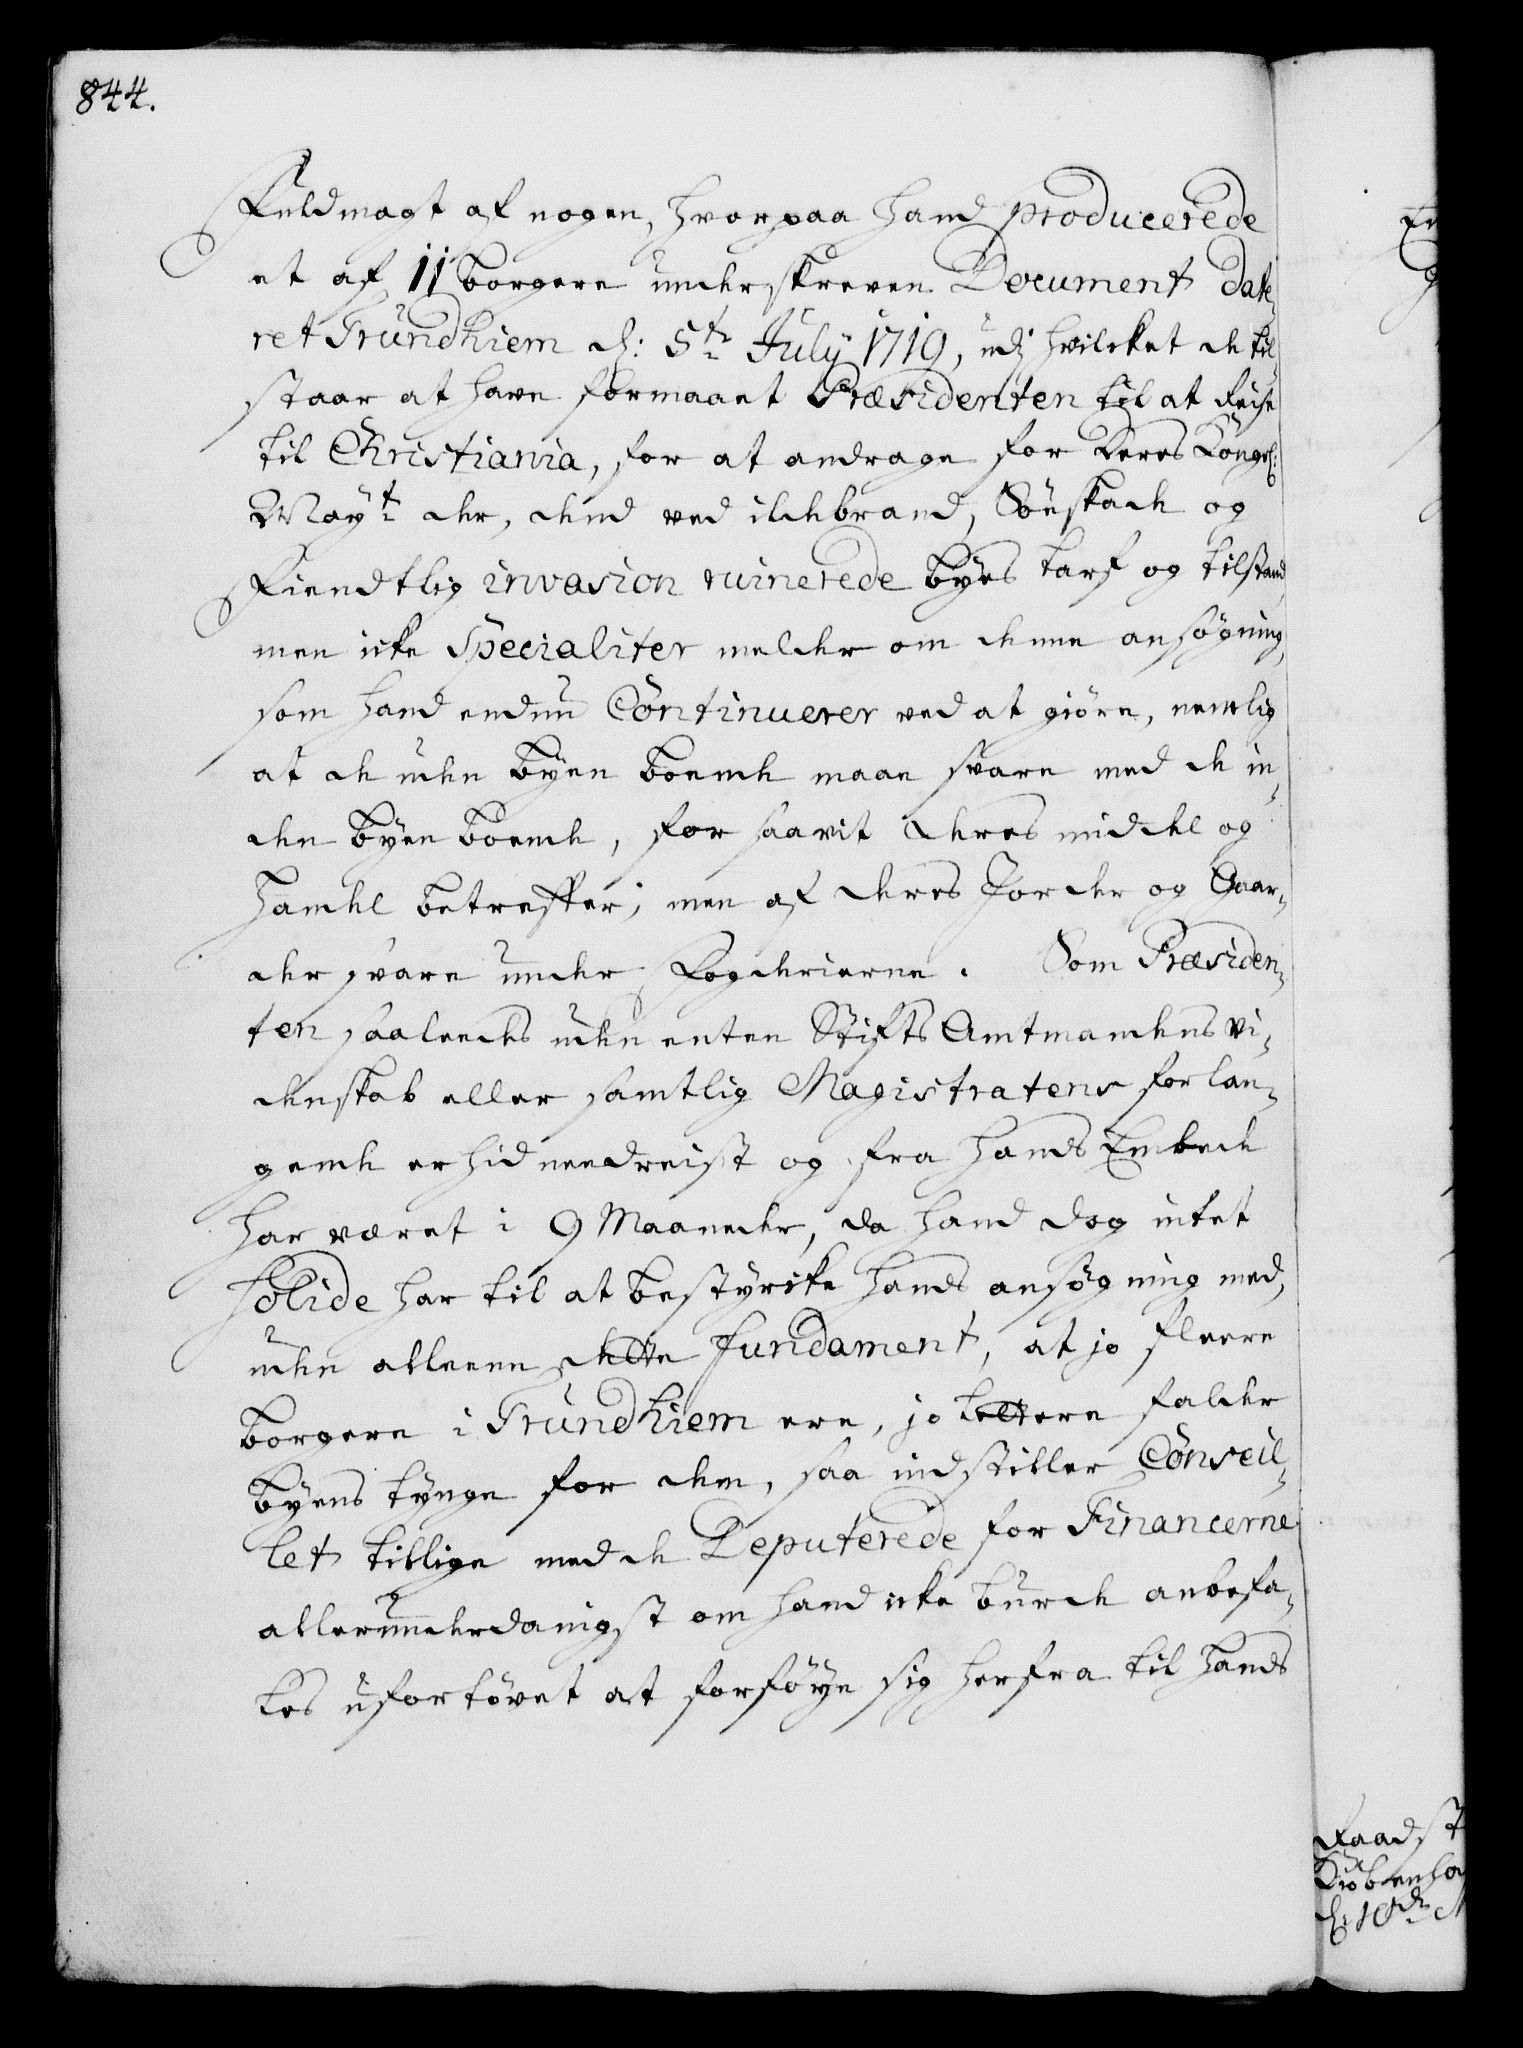 844.
Fuldmagt af nogen, hvorpaa hand producerede
et af 11 borgere underskreven Document date,
ret Trundhiem d: 5te July 1719, udj hvilcket de til,
staar at have formaaet Præsidenten til at Reise
til Christiania, for at andrage for Deres Kongel:
Mayts der, dend ved ildebrand, Söeskade og
Fiendtlig invasion ruinerede byes tarf og tilstand,
men icke specialiter melder om denne ansøgning,
som hand endnu Continuerer ved at giöre, nemlig
at de uden byen boende maae svare med de in,
den byen boende, for saavit deres middel og
handel betreffer; men af deres Jorder og Gaar,
der svare under Fogderierne. Som Præsiden,
ten saaleedes uden enten Stifts Amtmandens vi,
denskab eller samtlig Magistratens forlan,
gende er hid needreist og fra hands Embede
har været i 9 Maaneder, da hand dog intet
solide har til at bestyrcke hands ansøgning med,
uden alleene dette fundament, at jo fleere
borgere i Trundhiem ere, jo lettere falder
byens tynge for dem, saa indstiller Conseil,
let tillige med de Deputerede for Financerne
allerunderdanigst om hand icke burde anbefa,
les ufortövet at forföye sig herfra til hands
Raadst
Kiöbenha
d: 10de